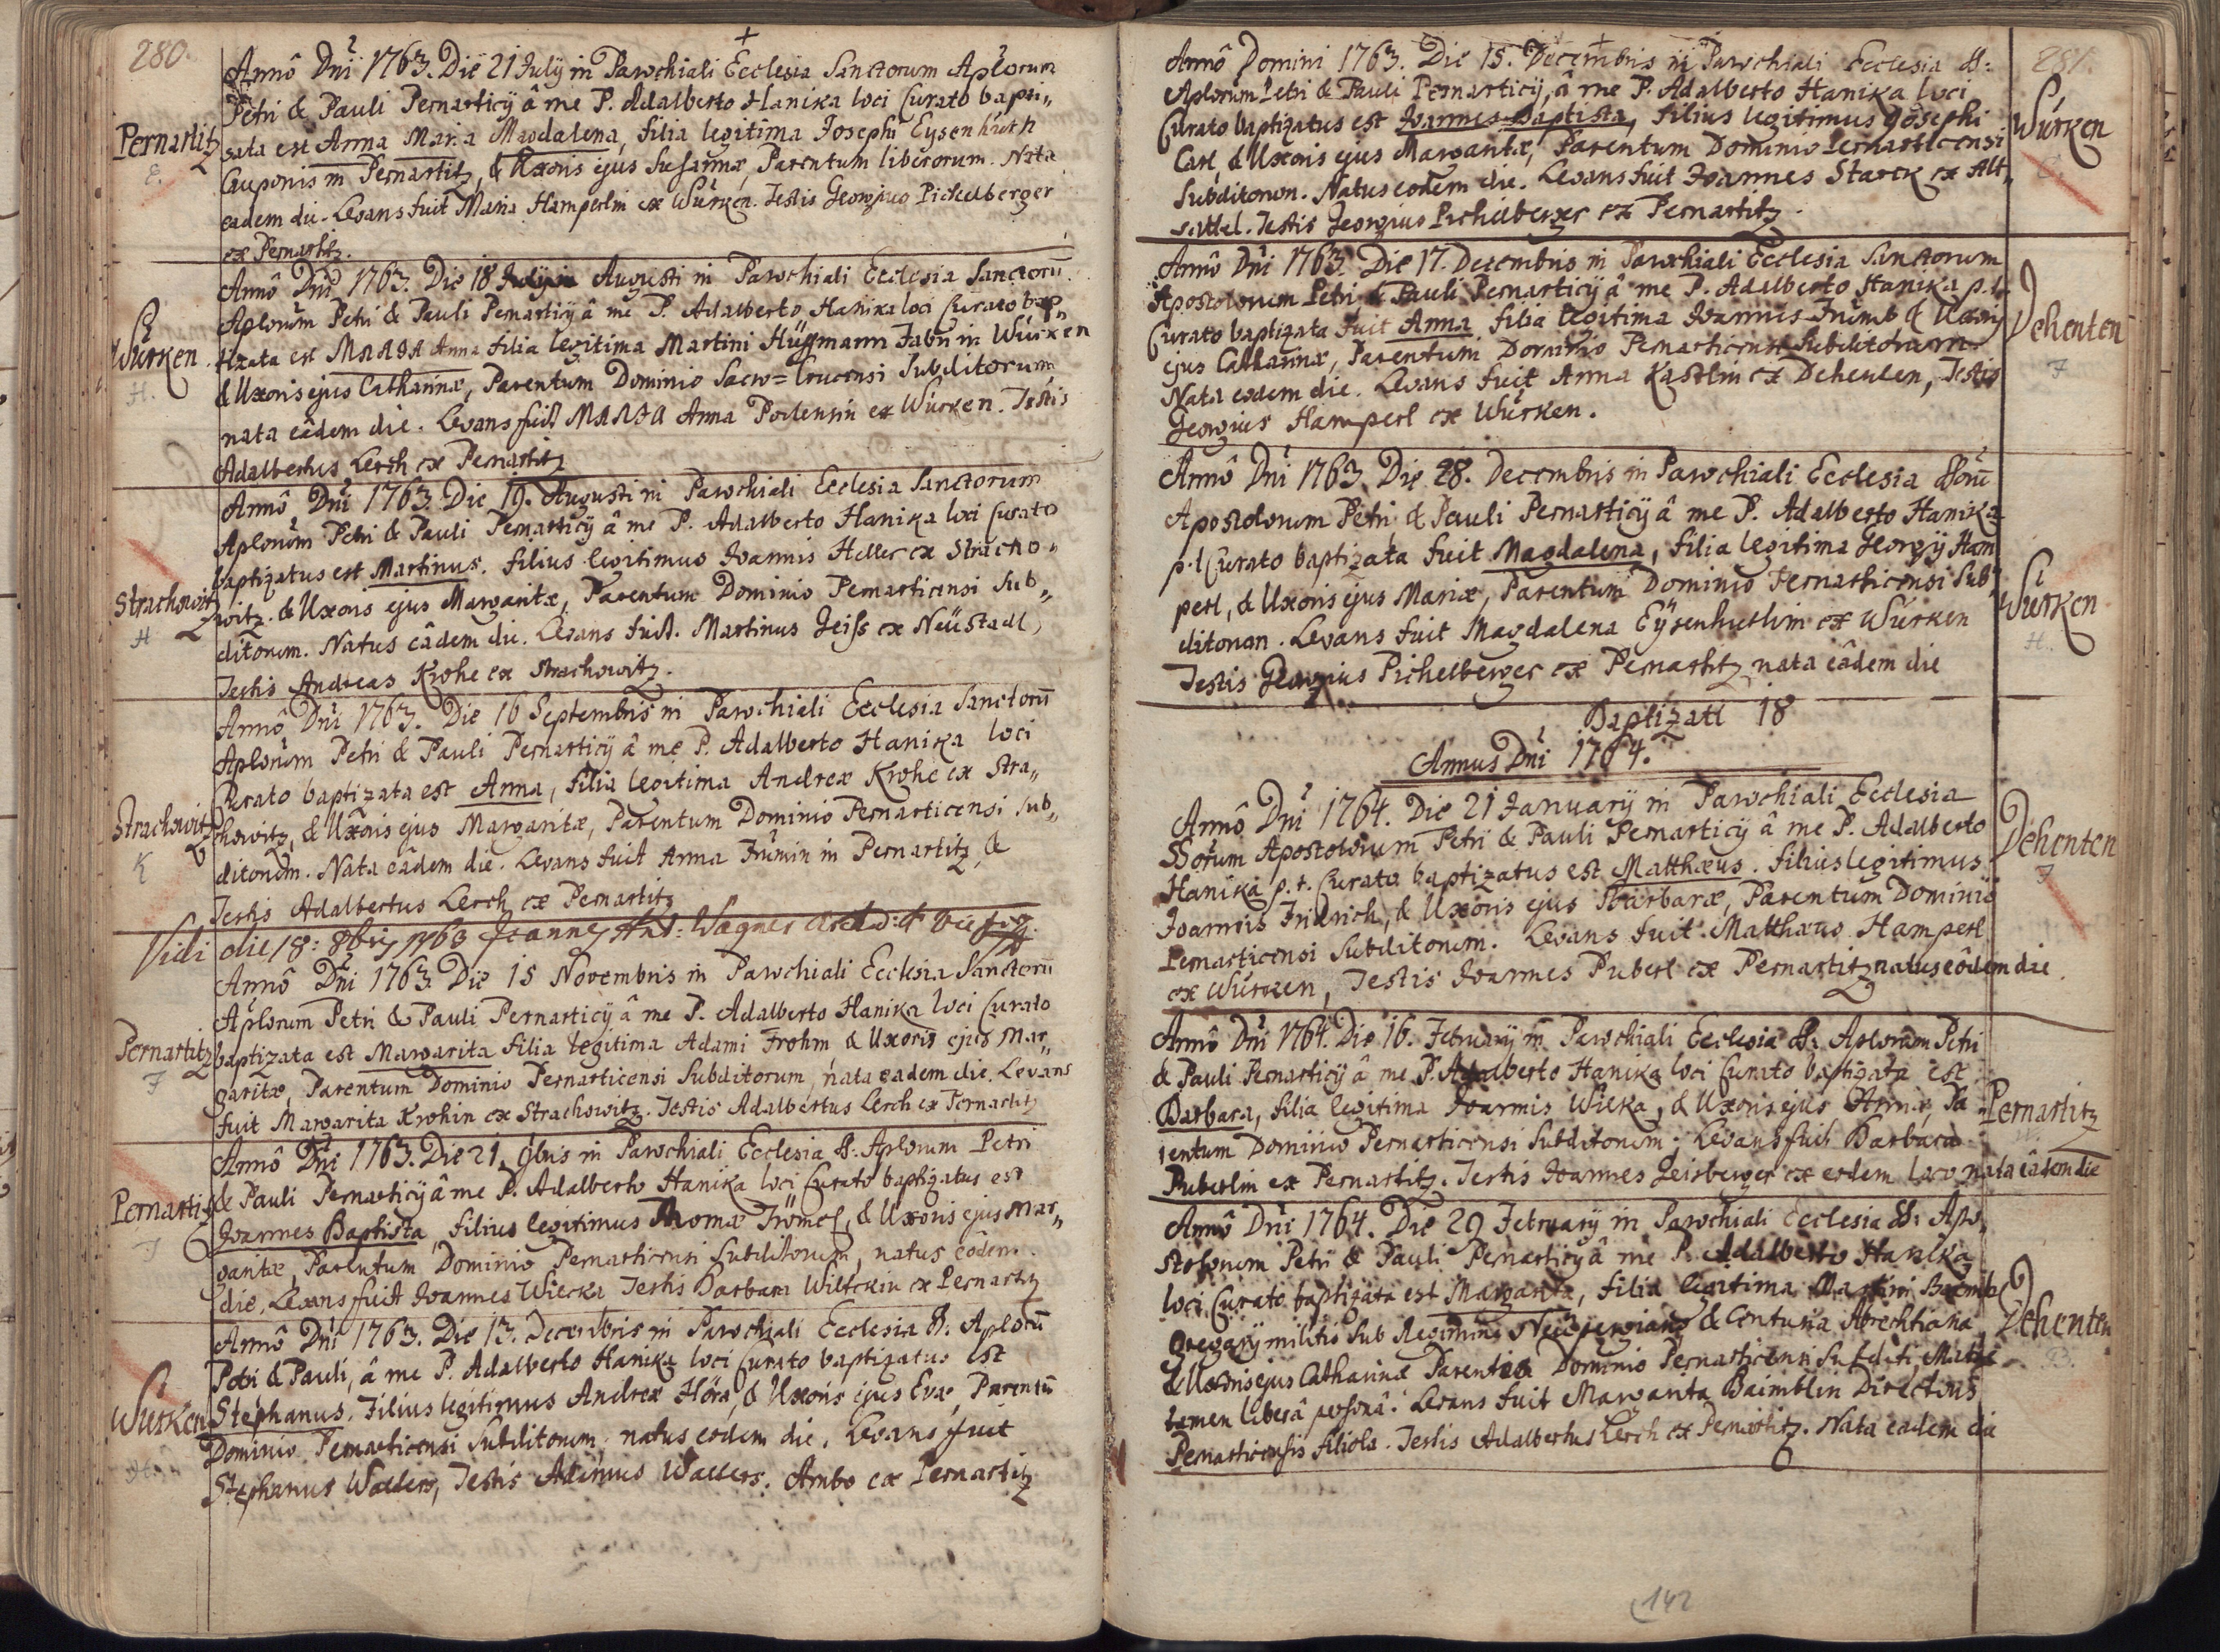 280.
Annô Dni 1763. Die 21 July in Parochiali Ecclesia Sanctorum Aplorum
Petri & Pauli Pernarticÿ â me P. Adalberto Hanika loci Curato bapti„
Pernartitz
sata est Anna Maria Magdalena, filia legitima Josephi Eysenhuth
E.
Cauponis in Pernartitz, & Uxoris ejus Susannæ, Parentum liberorum. Nata
eadem die. Levans fuit Maria Hamperlin ex Würken. Testis Georgius Pichelberger
ex Pernartitz.
Annô Dni 1763. Die 18 Augusti in Parochiali Ecclesia Sanctorū
Aplorum Petri & Pauli Pernarticÿ â me P. Adalberto Hanika loci Curato bap„
Würken.
tizata est MARIA Anna filia legitima Martini Hüssmann Fabri in Würken
H.
& Uxoris ejus Catharinæ, Parentum Dominio Sacro=Crucensi Subditorum,
nata eâdem die. Levans fuit MARIA Anna ex Würken. Testis
Adalbertus Lerch ex Pernartitz
Annô Dni 1763. Die 19. Augusti in Parochiali Ecclesia Sanctorum
Aplorum Petri & Pauli Pernarticÿ â me P. Adalberto Hanika loci Curato
baptizatus est Martinus. filius legitimus Joannis Heller ex Stracho„
Strachowitz
witz. & Uxoris ejus Margaritæ, Parentum Dominio Pernarticensi Sub„
H
ditorum. Natus eâdem die. Levans fuit. Martinus Zeiss ex Neüstadl,
Testis Andreas Krohe ex Strachowitz.
Annô Dni 1763. Die 16 Septembris in Parochiali Ecclesia Sanctorū
Aplorum Petri & Pauli Pernarticÿ â me P. Adalberto Hanika loci
Curato baptizata est Anna, filia legitima Andreæ Krohe ex Stra„
Strachowitz
chowitz, & Uxoris ejus Margaritæ, Parentum Dominio Pernarticensi Sub„
K
ditorum. Nata eâdem die. Levans fuit Anna in Pernartitz, &
Testis Adalbertus Lerch ex Pernartitz
Vidi die 18: 8bris 1763 Joannes Ant: Wagner
Annô Dni 1763. Die 15 Novembris in Parochiali Ecclesia Sanctorū
Aplorum Petri & Pauli Pernarticÿ â me P. Adalberto Hanika loci Curato
Pernartitz
baptizata est Margarita filia legitima Adami Frohm, & Uxoris ejus Mar„
F
garitæ, Parentum Dominio Pernarticensi Subditorum, nata eadem die. Levans
fuit Margarita Krohin ex Strachowitz. Testis Adalbertus Lerch ex Pernartitz
Annô Dni 1763. Die 21. 9bris in Parochiali Ecclesia SS: Aplorum Petri
Pernartitz
& Pauli Pernarticÿ â me P. Adalberto Hanika loci Curato baptizatus est
F
Joannes Baptista, filius legitimus Thomæ Frömel, & Uxoris ejus Mar„
garitæ, Parentum Dominio Pernarticensi Subditorum, natus eâdem
die, Levans fuit Joannes Wiecka Testis Barbara ex Pernartitz
Annô Dni 1763. Die 13. Decembris in Parochiali Ecclesia SS: Aplorū
Petri & Pauli, â me P. Adalberto Hanika loci Curato baptizatus est
Würken
Stephanus. Filius legitimus Andreæ Höra, & Uxoris ejus Evæ, Parentū
H.
Dominio Pernarticensi Subditorum. natus eodem die. Levans fuit
Stephanus Walters, Testis Adamus Walters. Ambo ex Pernartitz
281.
Annô Domini 1763. Die 15. Decembris in Parochiali Ecclesia SS:
Aplorum Petri & Pauli Pernarticÿ, â me P. Adalberto Hanika loci
Curato baptizatus est Joannes Baptista, filius legitimus Josephi
Würken
Carl, & Uxoris ejus Margaritæ, Parentum Dominio Pernarticensi
C.
Subditorum. Natus eodem die. Levans fuit Joannes Starck ex Alt„
sattel. Testis Georgius Pichelberger ex Pernartitz.
Annô Dni 1763. Die 17. Decembris in Parochiali Ecclesia Sanctorum
Apostolorum Petri & Pauli Pernarticÿ â me P. Adalberto Hanika p.t.
Curato baptizata fuit Anna filia legitima Joannis & Uxoris
Dehenten
ejus Catharinæ, Parentum Dominio Pernarticensi Subditorum.
F
Nata eodem die. Levans fuit Anna Kastlin ex Dehenten, Testis
Georgius Hamperl ex Würken.
Annô Dni 1763. Die 28. Decembris in Parochiali Ecclesia SSorū
Apostolorum Petri & Pauli Pernarticÿ â me P. Adalberto Hanika
p.t Curato baptizata fuit Magdalena, filia legitima Georgÿ Ham„
Würken
perl, & Uxoris ejus Mariæ, Parentum Dominio Pernarticensi Sub„
H.
ditorum. Levans fuit Magdalena Eÿsenhuthin ex Würken
Testis Georgius Pichelberger ex Pernartitz nata eâdem die
Baptizati 18
Annus Dni 1764.
Annô Dni 1764. Die 21 Januarÿ in Parochiali Ecclesia
SSorum Apostolorum Petri & Pauli Pernarticÿ â me P. Adalberto
Dehenten
Hanika p.t. Curato baptizatus est Matthæus. filius legitimus
F
Joannis Fridrich, & Uxoris ejus Barbaræ, Parentum Dominio
Pernarticensi Subditorum. Levans fuit Matthæus Hamperl
ex Würken, Testis Joannes Puberl ex Pernartitz natus eôdem die.
Annô Dni 1764. Die 16. Februarÿ in Parochiali Ecclesia SS: Aplorum Petri
& Pauli Pernarticÿ â me P. Adalberto Hanika loci Curato baptizata est
Barbara, filia legitima Joannis Wilka, & Uxoris ejus Annæ, Pa„
Pernartitz
rentum Dominio Pernarticensi Subditorum. Levans fuit Barbara
Puberlin ex Pernartitz. Testis Joannes Zeisberger ex eodem loco nata eâdem die
Annô Dni 1764. Die 29 Februarÿ in Parochiali Ecclesia SS: Apo„
stolorum Petri & Pauli Pernarticÿ â me P. Adalberto Hanika
loci Curato baptizata est Margarita, filia legitima Martini
Dehenten
Gregarÿ militis sub Regimine & Centuria
B.
& Uxoris ejus Catharinæ Dominio Pernarticensi
tamen liberâ personâ. Levans fuit Margarita Baimblin Directoris
Pernarticensis filiola. Testis Adalbertus Lerch ex Pernartitz. Nata eadem die
142